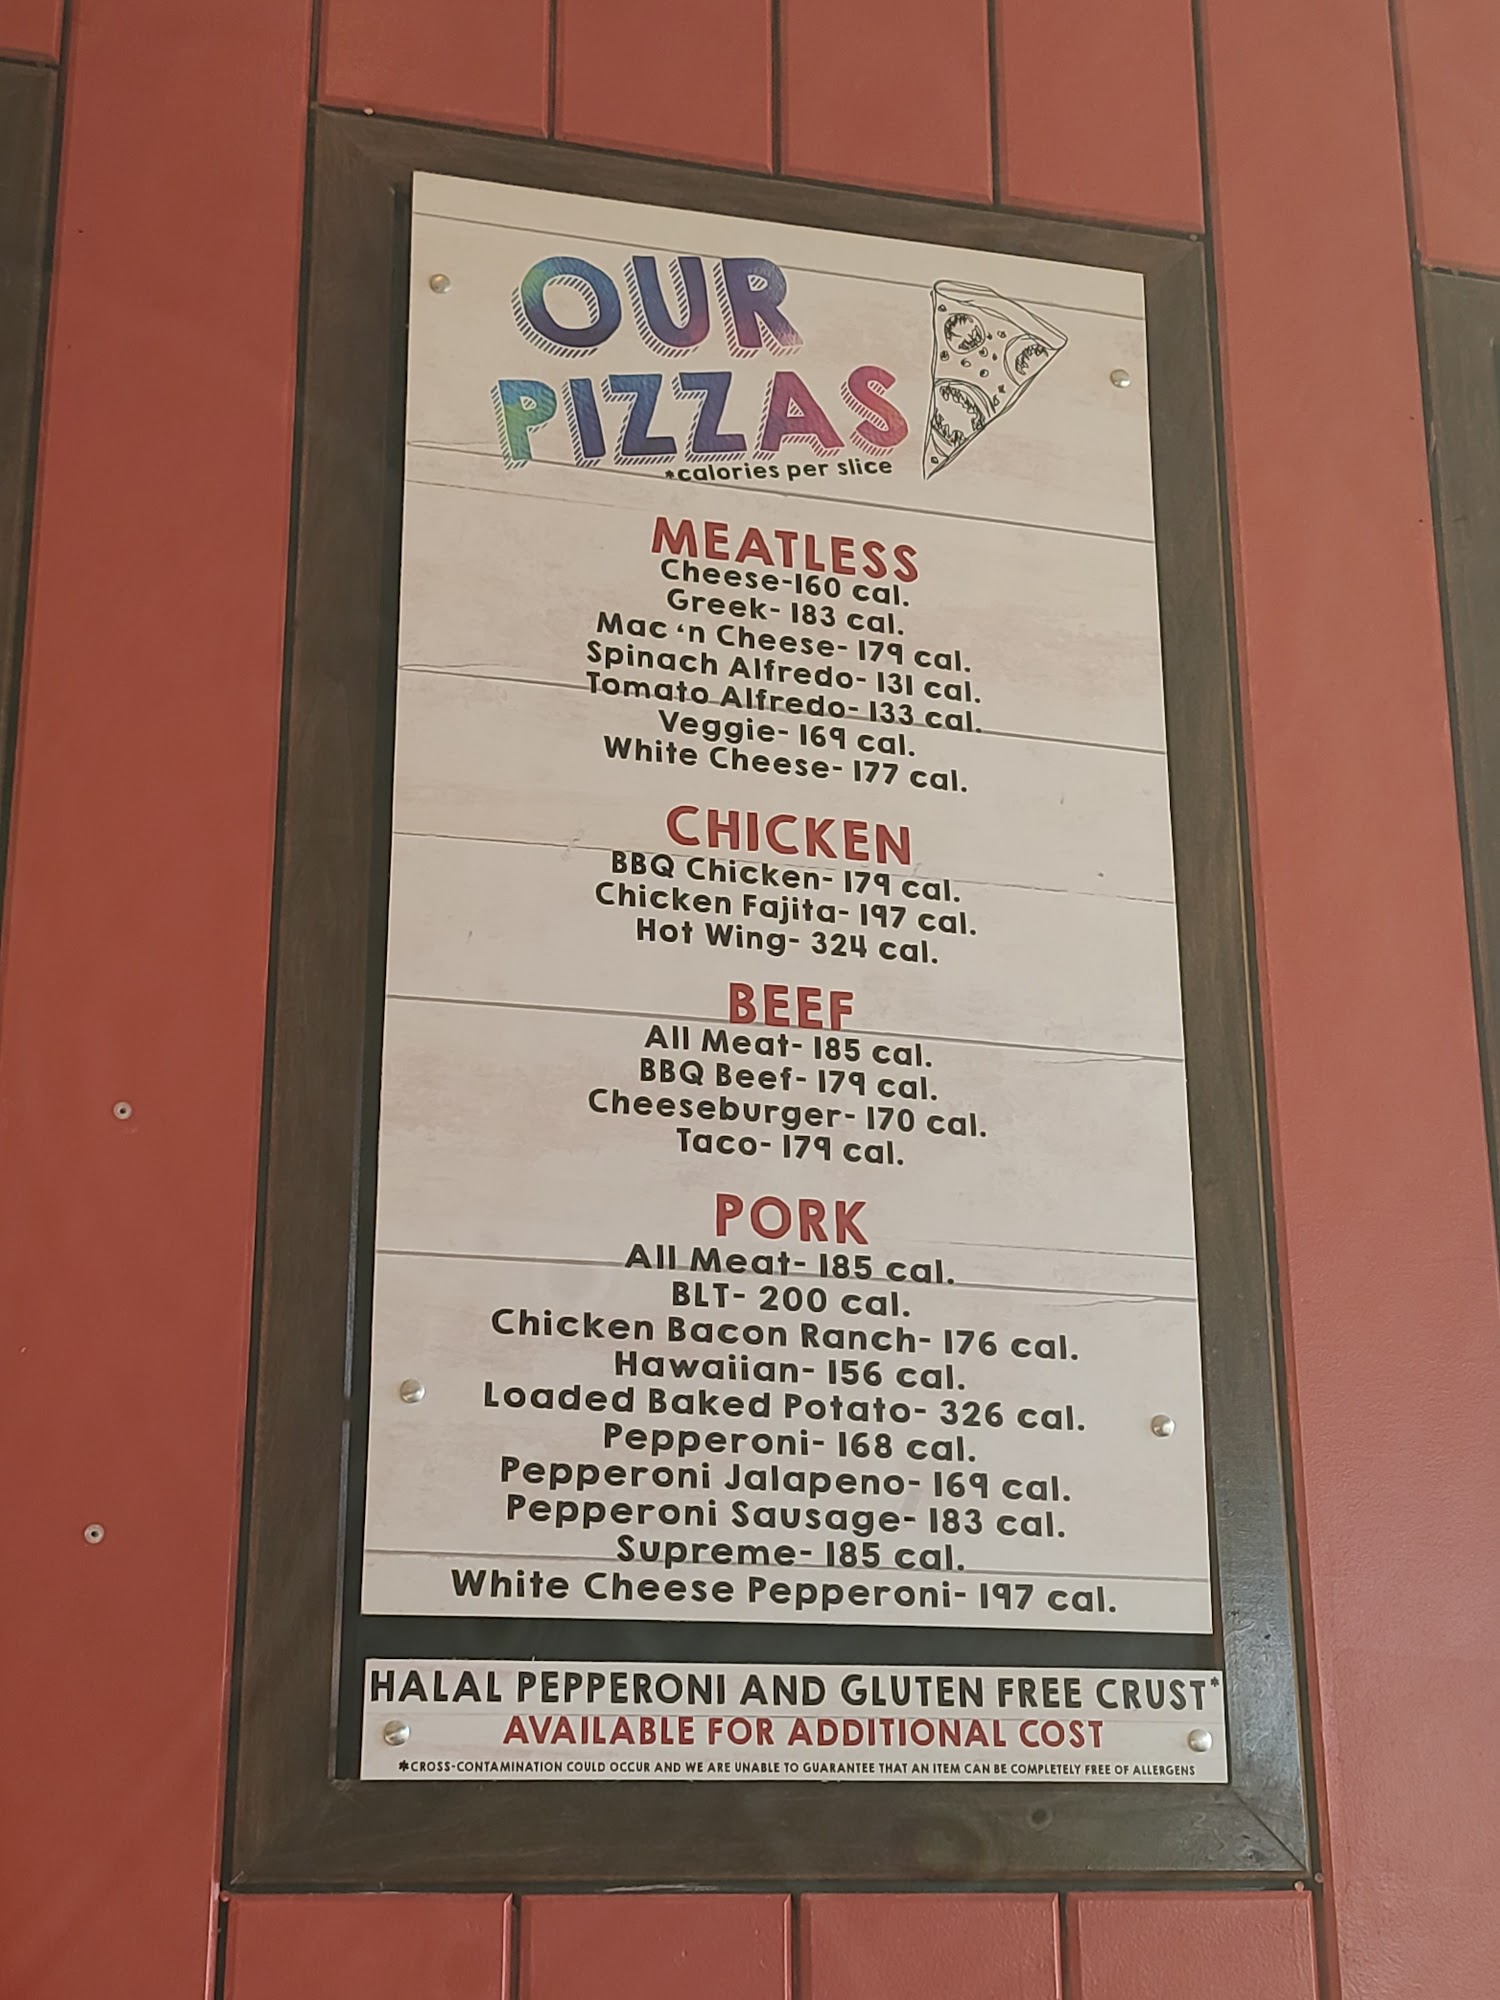 OUR
PIZZAS
*calories per slice
MEATLESS
Cheese-160 cal.
Greek- 183 cal.
Mac ‘n Cheese- 179 cal.
Spinach Alfredo- 131 cal.
Tomato Alfredo- 133 cal.
Veggie- 169 cal.
White Cheese- 177 cal.
CHICKEN
BBQ Chicken- 179 cal.
Chicken Fajita- 197 cal.
Hot Wing- 324 cal.
BEEF
All Meat- 185 cal.
BBQ Beef- 179 cal.
Cheeseburger- 170 cal.
Taco- 179 cal.
PORK
All Meat- 185 cal.
BLT- 200 cal.
Chicken Bacon Ranch- 176 cal.
Hawaiian- 156 cal.
Loaded Baked Potato- 326 cal.
Pepperoni- 168 cal.
Pepperoni Jalapeno- 169 cal.
Pepperoni Sausage- 183 cal.
Supreme- 185 cal.
White Cheese Pepperoni- 197 cal.
HALAL PEPPERONI AND GLUTEN FREE CRUST*
AVAILABLE FOR ADDITIONAL COST
*CROSS-CONTAMINATION COULD OCCUR AND WE ARE UNABLE TO GUARANTEE THAT AN ITEM CAN BE COMPLETELY FREE OF ALLERGENS